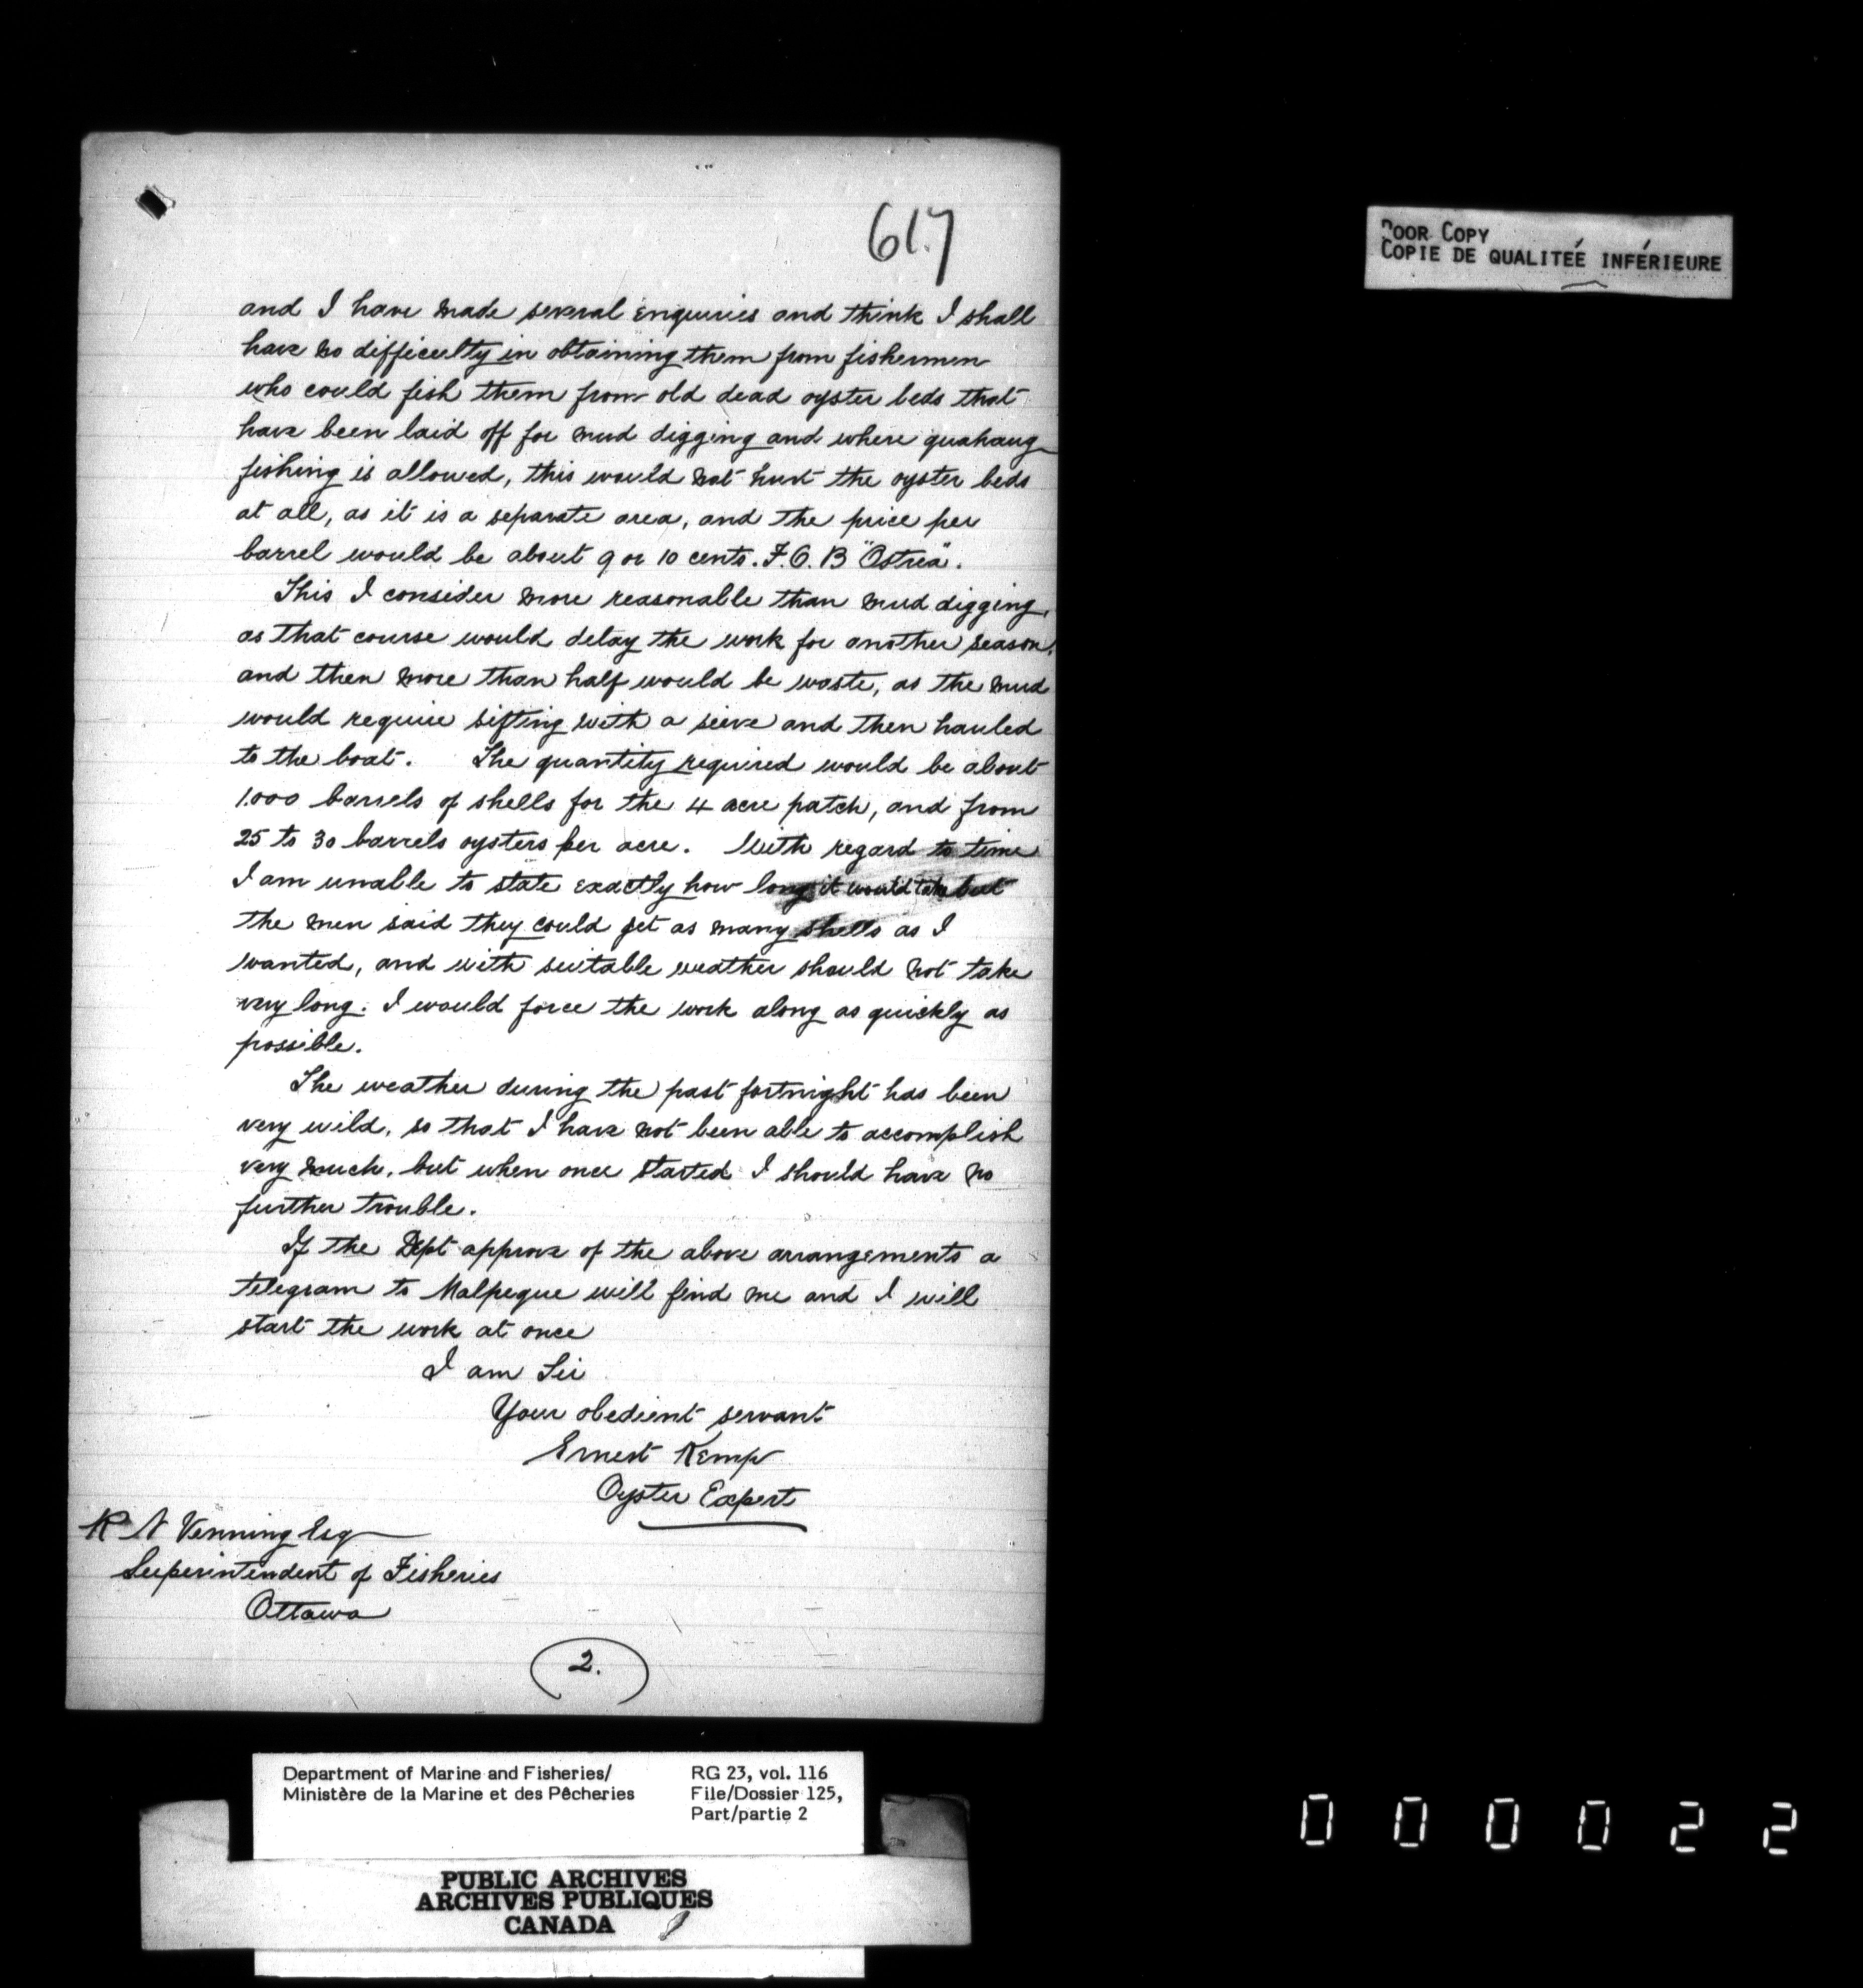 617
POOR COPY
COPIE DE QUALITEÉ INFÉRIEURE
and I have made several enquiries and think I shall
have no difficulty in obtaining them from fishermen
who could fish them from old dead oyster beds that
have been laid off for mud digging and where quahaug
fishing is allowed, this would not hurt the oyster beds
at all, as it is a separate area, and the price per
barrel would be about 9 or 10 cents. F.O.B "Ostrea".
This I consider more reasonable than mud digging,
as that course would delay the work for another season,
and then more than half would be waste, as the mud
would require sifting with a seive and then hauled
to the boat. The quantity required would be about
1.000 barrels of shells for the 4 acre patch, and from
25 to 30 barrels oysters per acre. With regard to time
I am unable to state exactly how long it would take but
the men said they could get as many shells as I
wanted, and with suitable weather should not take
very long. I would force the work along as quickly as
possible.
The weather during the past fortnight has been
very wild, so that I have not been able to accomplish
very much, but when once started I should have no
further trouble.
If the Dept approve of the above arrangements a
telegram to Malpeque will find me and I will
start the work at once
I am Sir
Your obedient servant
Ernest Kemp
Oyster Expert
R N Venning Esq
Superintendent of Fisheries
Ottawa
2.
Department of Marine and Fisheries/
Ministère de la Marine et des Pêcheries
RG 23, vol. 116
File/Dossier 125,
Part/partie 2
PUBLIC ARCHIVES
ARCHIVES PUBLIQUES
CANADA
000022